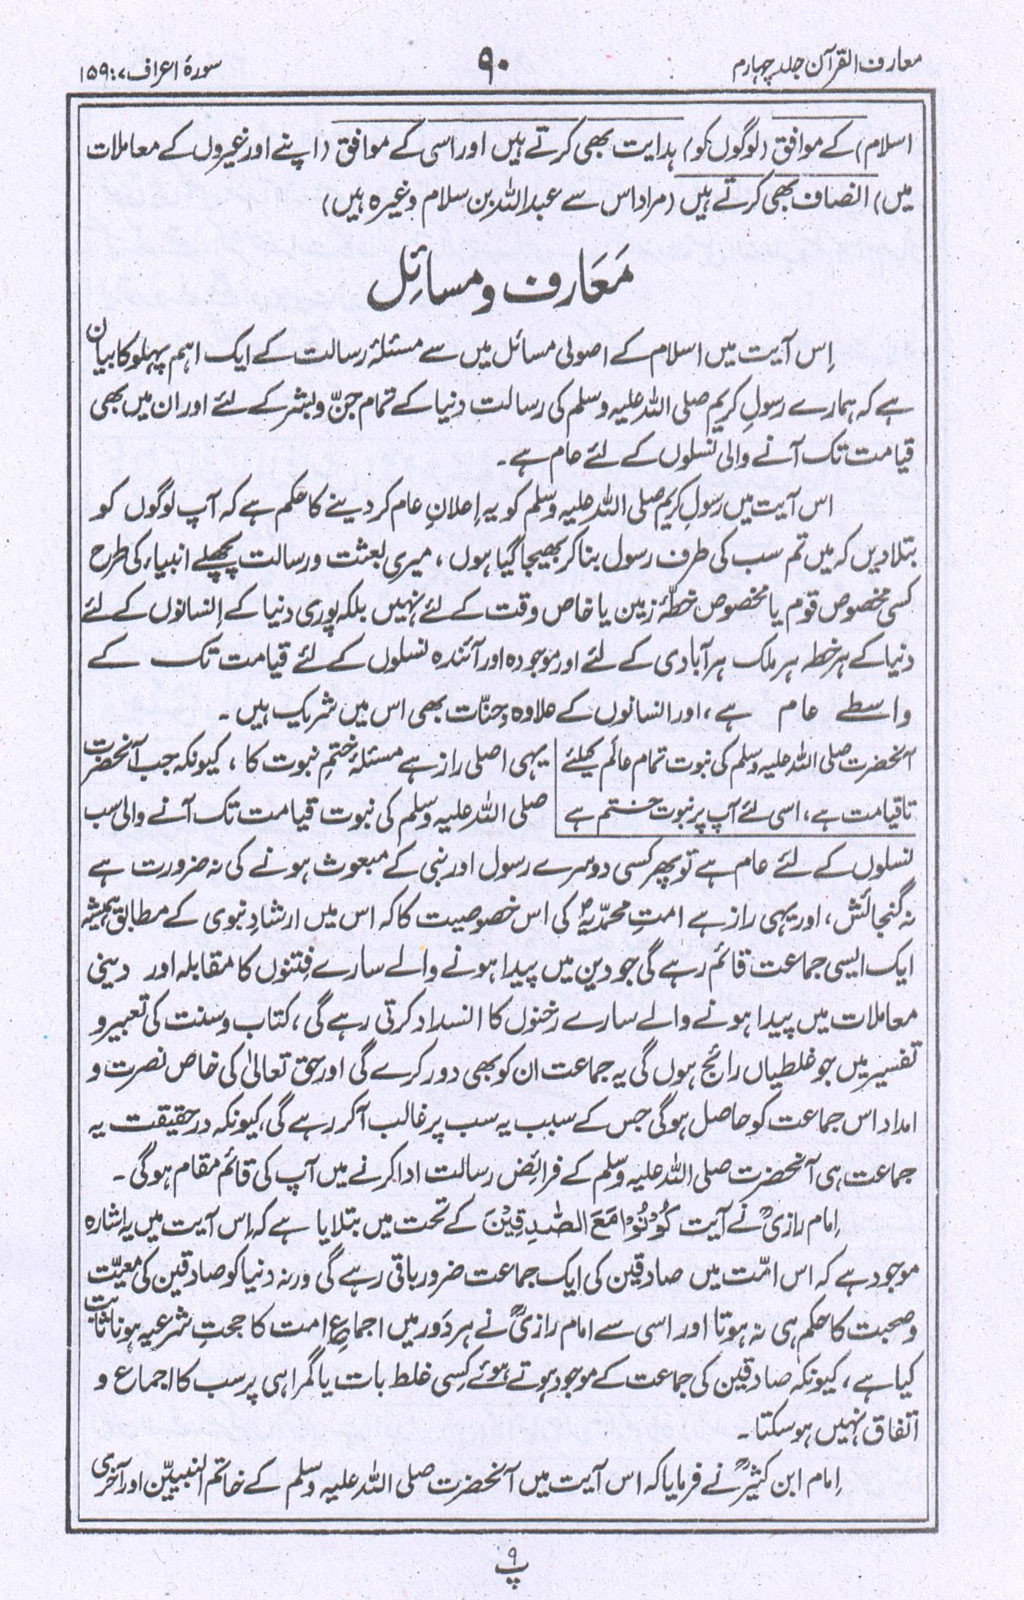 معارف القرآن جلد چہارم
۹۰
سورۂ اعراف ۷: ۱۵۹
اسلام) کے موافق (لوگوں کو) ہدایت بھی کرتے ہیں اور اسی کے موافق (اپنے اور غیروں کے معاملات
میں) انصاف بھی کرتے ہیں (مراد اس سے عبد اللہ بن سلام وغیرہ ہیں)
مَعَارف و مسائِل
اِس آیت میں اسلام کے اصولی مسائل میں سے مسئلۂ رسالت کے ایک اہم پہلو کا بیان
ہے کہ ہمارے رسولِ کریم صلی اللہ علیہ وسلم کی رسالت دنیا کے تمام جنّ و بشر کے لئے اور ان میں بھی
قیامت تک آنے والی نسلوں کے لئے عام ہے۔
اس آیت میں رسولِ کریم صلی اللہ علیہ وسلم کو یہ اِعلانِ عام کر دینے کا حکم ہے کہ آپ لوگوں کو
بتلا دیں کہ میں تم سب کی طرف رسول بنا کر بھیجا گیا ہوں، میری بعثت و رسالت پچھلے انبیاء کی طرح
کسی مخصوص قوم یا مخصوص خطۂ زمین یا خاص وقت کے لئے نہیں بلکہ پوری دنیا کے اِنسانوں کے لئے
دنیا کے ہر خطہ ہر ملک ہر آبادی کے لئے اور موجودہ اور آئندہ نسلوں کے لئے قیامت تک کے
واسطے عام ہے، اور انسانوں کے علاوہ جِنّات بھی اس میں شریک ہیں۔
آنحضرت صلی اللہ علیہ وسلم کی نبوت تمام عالَم کیلئے
تاقیامت ہے، اسی لئے آپ پر نبوت ختم ہے
یہی اصلی راز ہے مسئلۂ ختمِ نبوت کا، کیونکہ جب آنحضرت
صلی اللہ علیہ وسلم کی نبوت قیامت تک آنے والی سب
نسلوں کے لئے عام ہے تو پھر کسی دوسرے رسول اور نبی کے مبعوث ہونے کی نہ ضرورت ہے
نہ گنجائش، اور یہی راز ہے امتِ محمدیہؐ کی اس خصوصیت کا کہ اس میں ارشادِ نبوی کے مطابق ہمیشہ
ایک ایسی جماعت قائم رہے گی جو دین میں پیدا ہونے والے سارے فتنوں کا مقابلہ اور دینی
معاملات میں پیدا ہونے والے سارے رَخنوں کا انسداد کرتی رہے گی، کتاب و سنت کی تعبیر و
تفسیر میں جو غلطیاں رائج ہوں گی یہ جماعت ان کو بھی دور کرے گی اور حق تعالیٰ کی خاص نصرت و
امداد اس جماعت کو حاصل ہوگی جس کے سبب یہ سب پر غالب آکر رہے گی، کیونکہ درحقیقت یہ
جماعت ہی آنحضرت صلی اللہ علیہ وسلم کے فرائض رسالت ادا کرنے میں آپ کی قائم مقام ہوگی۔
اِمام رازیؒ نے آیت كُوْنُوْا مَعَ الصّٰدِقِيْنَ کے تحت میں بتلایا ہے کہ اِس آیت میں یہ اشارہ
موجود ہے کہ اس امّت میں صادقین کی ایک جماعت ضرور باقی رہے گی ورنہ دنیا کو صادقین کی معیّت
و صحبت کا حکم ہی نہ ہوتا اور اسی سے امام رازیؒ نے ہر دَور میں اجماعِ امت کا حجتِ شرعیہ ہونا ثابت
کیا ہے، کیونکہ صادقین کی جماعت کے موجود ہوتے ہوئے کِسی غلط بات یا گمراہی پر سب کا اجماع و
اتفاق نہیں ہوسکتا۔
اِمام ابن کثیرؒ نے فرمایا کہ اس آیت میں آنحضرت صلی اللہ علیہ وسلم کے خاتم النبیین اور آخری
پ ۹